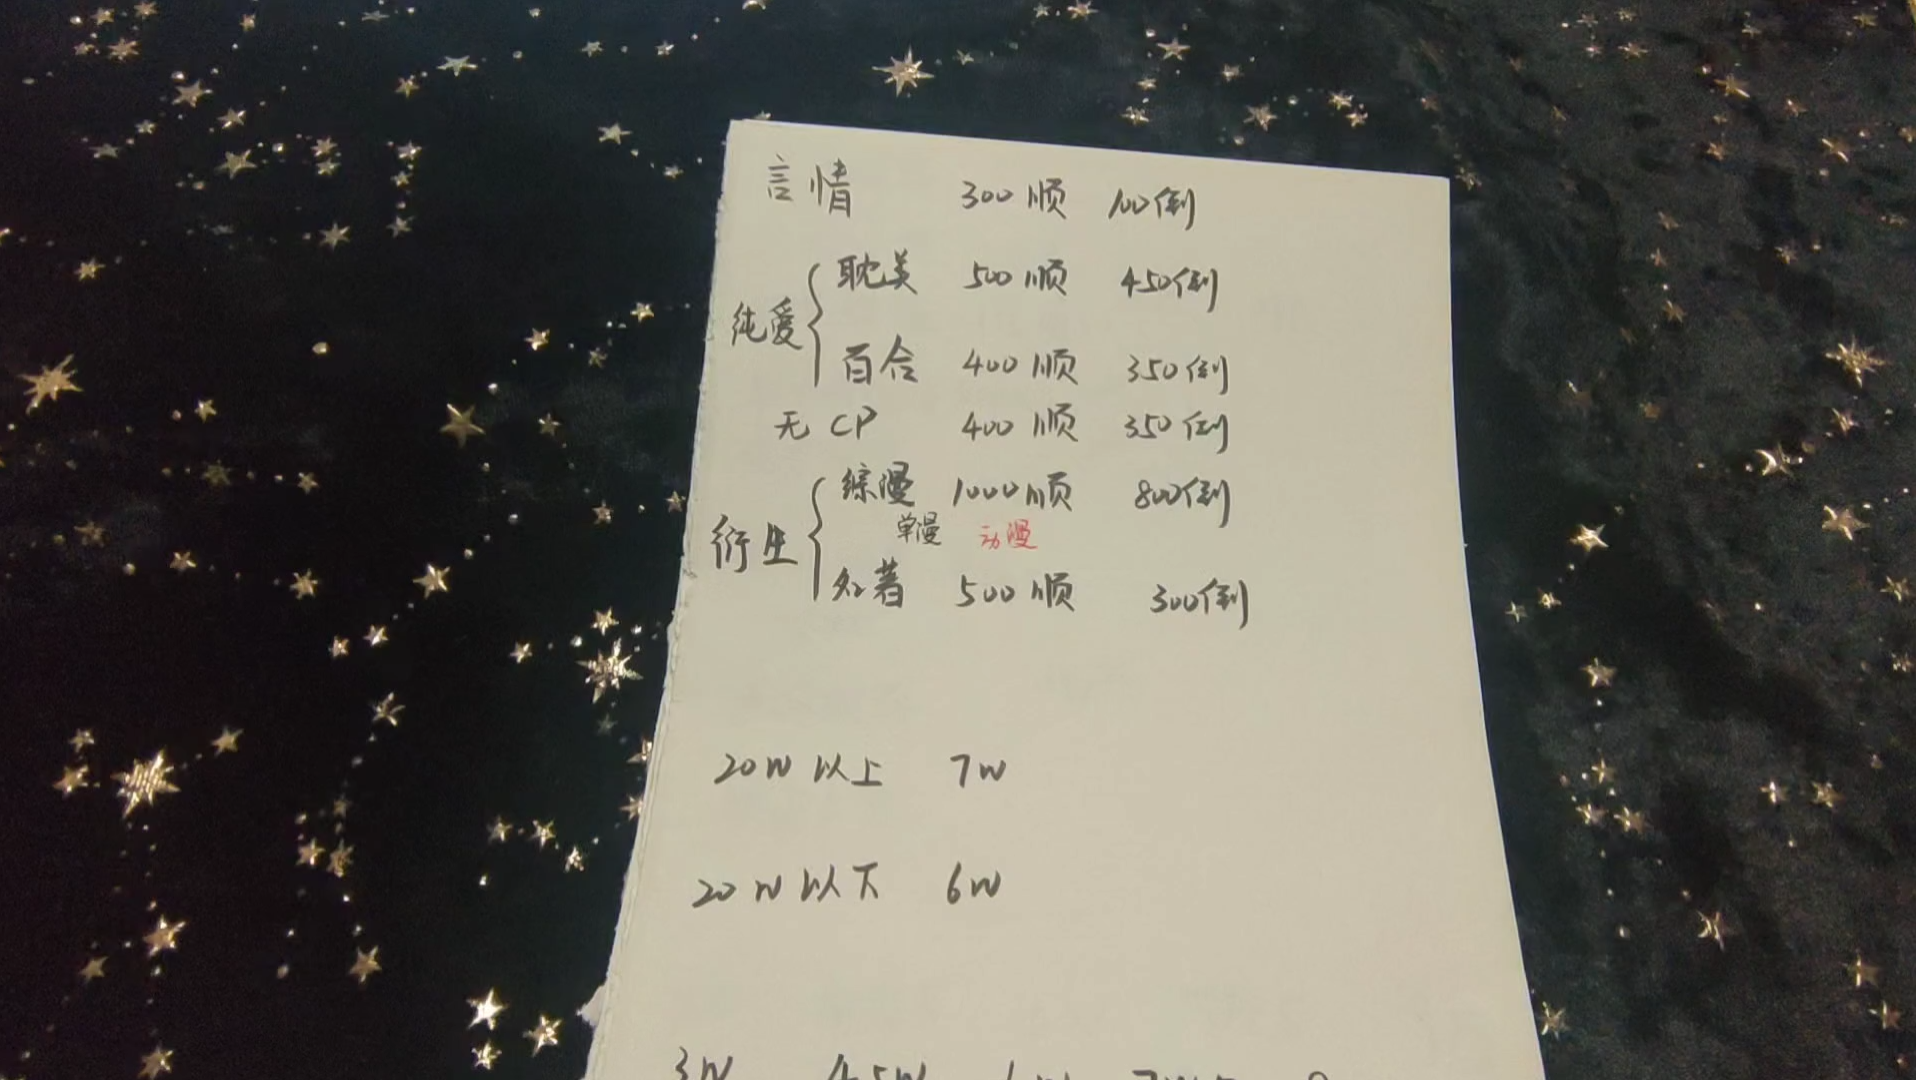 言情 300顺 100倒
耽美 500顺 450倒
纯爱
百合 400顺 350倒
无CP 400顺 350倒
综漫 1000顺 800倒
单漫 动漫
衍生
名著 500顺 300倒
20W以上 7W
20W以下 6W
3W 4.5W